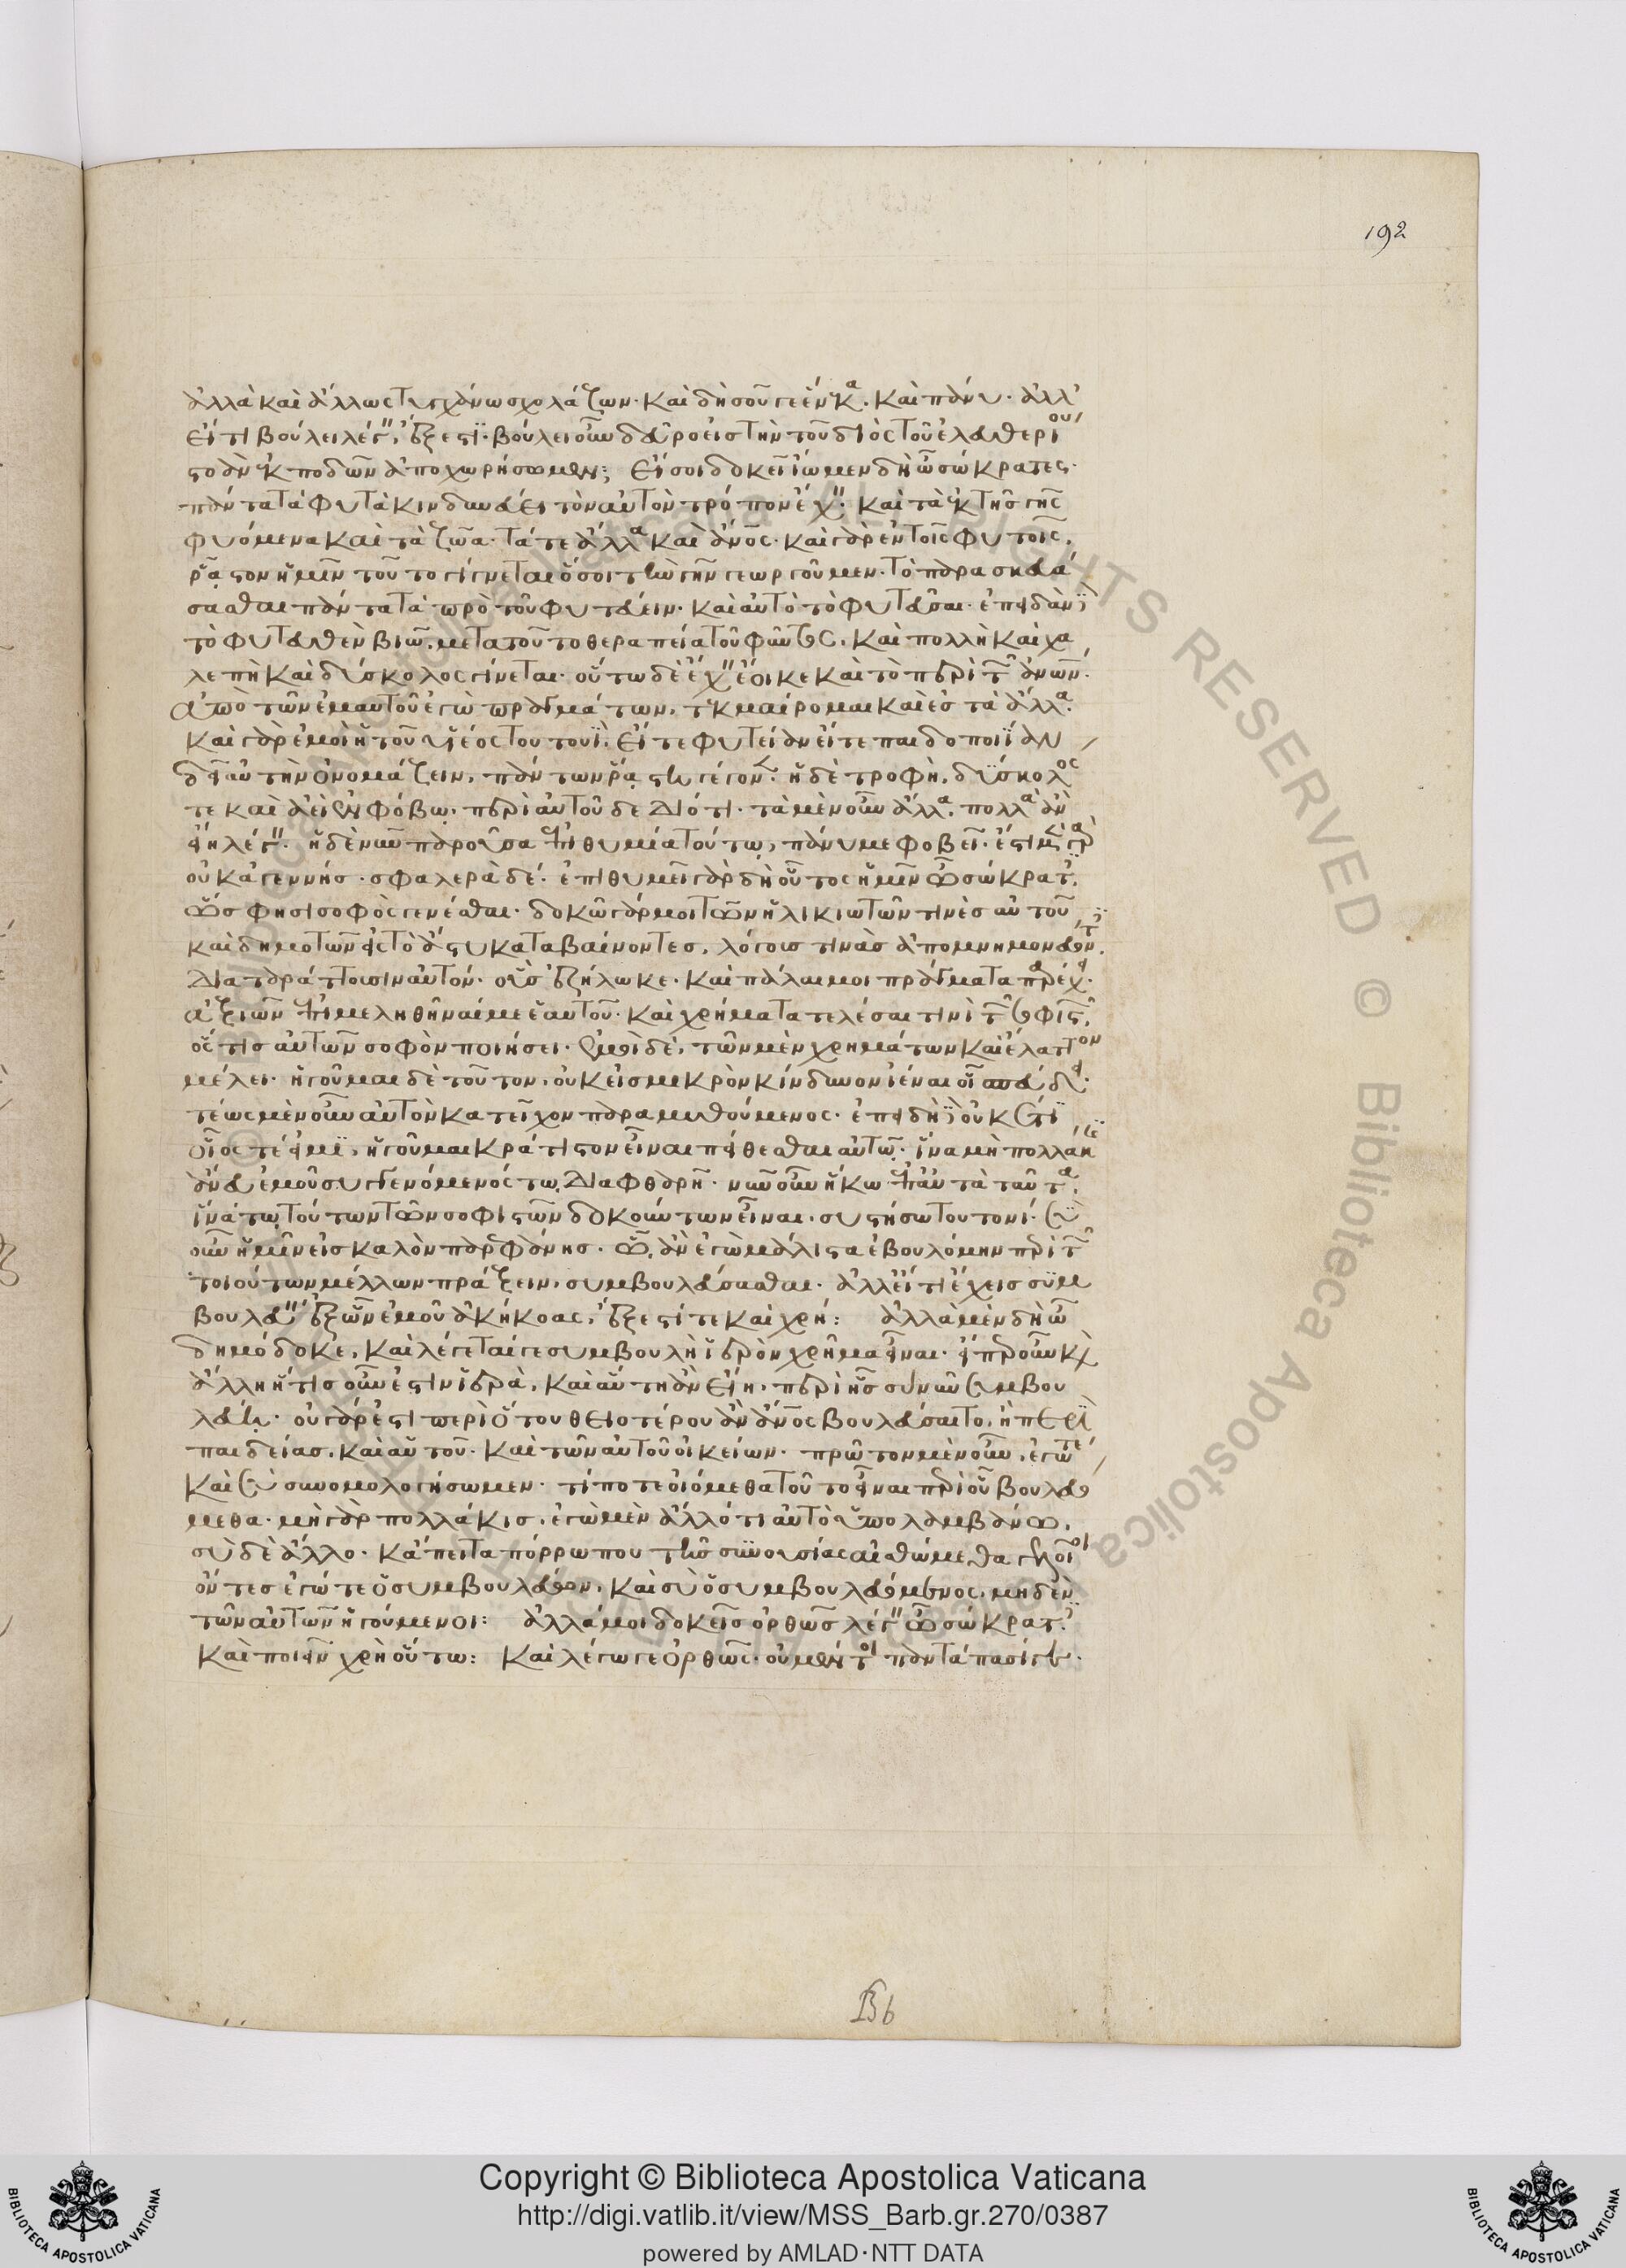 192
ἀλλὰ καὶ ἄλλως τυγχάνω σχολάζων· καὶ δὴ σοῦ γε ἕνεκα. καὶ πάνυ· ἀλλ'
εἴ τι βούλει λέγειν, ἔξεστι· βούλει οὖν δεῦρο εἰς τὴν τοῦ διὸς τοῦ ἐλευθερίου
στοὰν ἐκποδῶν ἀποχωρήσωμεν; εἴ σοι δοκεῖ ἴωμεν δὴ ὦ σώκρατες·
πάντα τὰ φυτὰ κινδυνεύει τὸν αὐτὸν τρόπον ἔχειν· καὶ τὰ ἐκ τῆς γῆς
φυόμενα καὶ τὰ ζῶα· τά τε ἄλλα καὶ ἄνος· καὶ γὰρ ἐν τοῖς φυτοῖς,
ρᾷστον ἡμῖν τοῦτο γίγνεται ὅσοι τὴν γῆν γεωργοῦμεν· τὸ παρασκευά
σασθαι πάντα τὰ πρὸ τοῦ φυτεύειν· καὶ αὐτὸ τὸ φυτεῦσαι· ἐπειδὰν
τὸ φυτευθὲν βιῶ, μετὰ τοῦτο θεραπεία τοῦ φύντος, καὶ πολλὴ καὶ χα
λεπὴ καὶ δύσκολος γίνεται· οὕτω δὲ ἔχειν ἔοικε καὶ τὸ περὶ τῶν ἀνων·
ἀπὸ τῶν ἐμαυτοῦ ἐγὼ πραγμάτων, τεκμαίρομαι καὶ ἐς τὰ ἄλλα.
καὶ γὰρ ἐμοὶ ἡ τοῦ υἱέος τουτουῒ, εἴτε φυτείαν εἴτε παιδοποιΐαν
δεῖ αὐτὴν ὀνομάζειν, πάντων ῥᾴστη γέγονεν· ἡ δὲ τροφὴ, δύσκολος
τε καὶ ἀεὶ ἐν φόβω, περὶ αὐτοῦ δεδιότι· τὰ μὲν οὖν ἄλλα, πολλὰ ἂν
εἴη λέγειν· ἡ δὲ νῦν παροῦσα ἐπιθυμία τούτω, πάνυ με φοβεῖ· ἔστι μὲν γὰρ
οὐκ ἀγεννής· σφαλερὰ δέ· ἐπιθυμεῖ γὰρ δὴ οὗτος ἡμῖν ὦ σώκρατες,
ὥς φησι σοφὸς γενέσθαι· δοκῶ γάρ μοι τῶν ἡλικιωτῶν τινὲς αὐτοῦ
καὶ δημοτῶν εἰς τὸ ἄστυ καταβαίνοντες, λόγους τινὰς ἀπομνημονεύοντες
διαταράττουσιν αὐτόν· οὓς ἐζήλωκε· καὶ πάλαι μοι πράγματα παρέχει·
ἀξιῶν ἐπιμεληθῆναί με ἑαυτοῦ· καὶ χρήματα τελέσαι τινὶ τῶν σοφιστῶν,
ὅστις αὐτὸν σοφὸν ποιήσει· ἐμοὶ δὲ, τῶν μὲν χρημάτων καὶ ἔλαττον
μέλει· ἡγοῦμαι δὲ τοῦτον, οὐκ εἰς μικρὸν κίνδυνον ἰέναι οἷ σπεύδει·
τέως μὲν οὖν αὐτὸν κατεῖχον παραμυθούμενος· ἐπειδὴ οὐκέτι
οἷός τέ εἰμι, ἡγοῦμαι κράτιστον εἶναι πείθεσθαι αὐτῶ· ἵνα μὴ πολλάκις
ἄνευ ἐμοῦ συγγενόμενός τω, διαφθαρῆ· νῦν οὖν ἥκω ἐπ' αὐτὰ ταῦτα,
ἵνα τω τούτων τῶν σοφιστῶν δοκούντων εἶναι, συστήσω τουτονί· σὺ
οὖν ἡμῖν εἰς καλὸν παρεφάνης· ὧ, ἂν ἐγὼ μάλιστα ἐβουλόμην περὶ τῶν
τοιούτων μέλλων πράξειν, συμβουλεύσασθαι· ἀλλ' εἴ τι ἔχεις συμ
βουλεύειν ἐξ ὧν ἐμοῦ ἀκήκοας, ἔξεστί τε καὶ χρή: ἀλλὰ μὲν δὴ ὦ
δημόδοκε, καὶ λέγεταί γε συμβουλὴ ἱερὸν χρῆμα εἶναι· εἴπερ οὖν καὶ
ἄλλη ἥτις οὖν ἐστὶν ἱερὰ, καὶ αὕτη ἂν εἴη, περὶ ἧς σὺ νῦν συμβου
λεύη· οὐ γάρ ἐστι περὶ ὅτου θειοτέρου ἂν ἄνος βουλεύσαιτο, ἢ περὶ
παιδείας, καὶ αὑτοῦ· καὶ τῶν αὑτοῦ οἰκείων· πρῶτον μὲν οὖν, ἐγώ τε
καὶ σὺ συνομολογήσωμεν· τί ποτε οἰόμεθα τοῦτο εἶναι περὶ οὗ βουλευό
μεθα· μὴ γὰρ πολλάκις, ἐγὼ μὲν ἄλλό τι αὐτὸ ὑπολαμβάνω,
σὺ δὲ ἄλλο· κἄπειτα πόρρω που τῆς συνουσίας αἰσθώμεθα γελοῖοι
ὄντες ἐγώ τε ὁ συμβουλεύων, καὶ σὺ ὁ συμβουλευόμενος, μηδὲν
τῶν αὐτῶν ἡγούμενοι: ἀλλά μοι δοκεῖς ὀρθῶς λέγειν ὦ σώκρατες
καὶ ποιεῖν χρὴ οὕτω: καὶ λέγω γε ὀρθῶς· οὐ μέντοι παντάπασί γε·
Bb
Copyright © Biblioteca Apostolica Vaticana
http://digi.vatlib.it/view/MSS_Barb.gr.270/0387
powered by AMLAD·NTT DATA